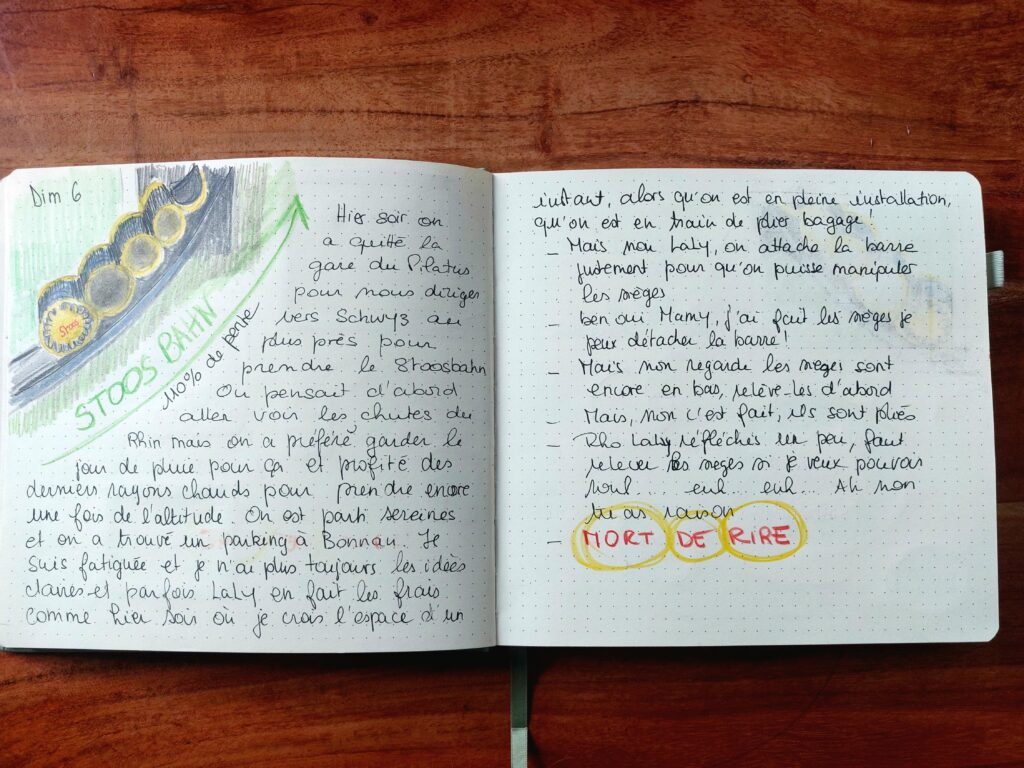 Dim 6
Stoos
STOOS BAHN
110% de pente
Hier soir on
a quitté la
gare du Pilatus
pour nous diriger
vers Schwyz au
plus près pour
prendre le Stoosbahn
On pensait d'abord
aller voir les chutes du
Rhin mais on a préféré garder le
jour de pluie pour ça et profité des
derniers rayons chauds pour prendre encore
une fois de l'altitude. On est parti sereines
et on a trouvé un parking à Bonnau. Je
suis fatiguée et je n'ai plus toujours les idées
claires et parfois Laly en fait les frais
comme hier soir où je crois l'espace d'un
instant, alors qu'on est en pleine installation,
qu'on est en train de plier bagage!
- Mais non Laly, on attache la barre
justement pour qu'on puisse manipuler
les sièges
- ben oui Mamy, j'ai fait les sièges je
peux détacher la barre!
- Mais non regarde les sièges sont
encore en bas, relève-les d'abord
- Mais, non c'est fait, ils sont pliés
- Rho Laly réfléchis un peu, faut
relever les sièges si je veux pouvoir
... euh... euh... Ah non
tu as raison
- MORT DE RIRE